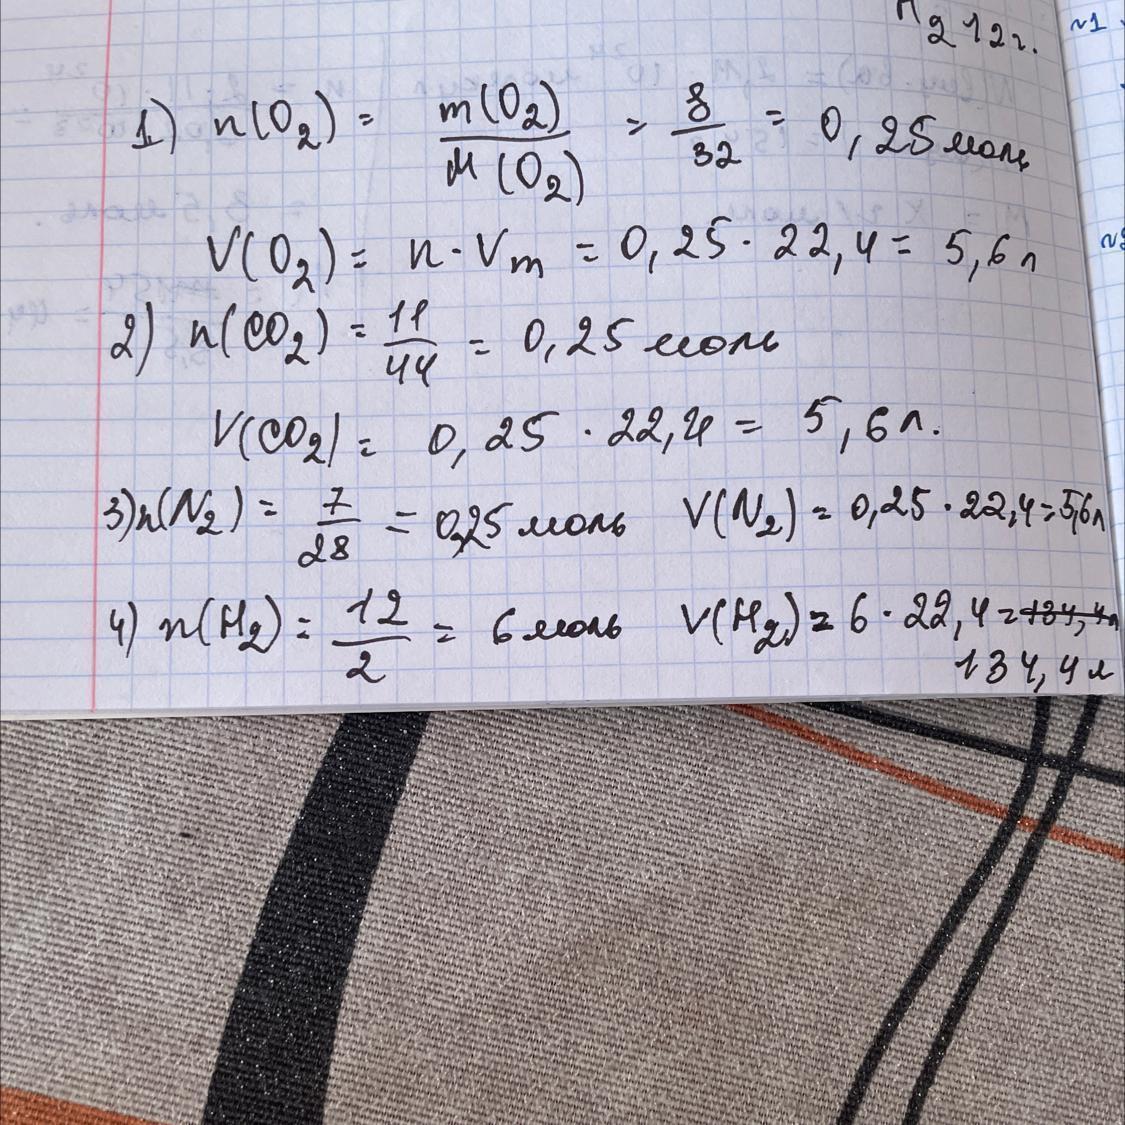 H₂ 12 г.
~1
1) n(O₂) = m(O₂) / M(O₂) = 8/32 = 0,25 моль
V(O₂) = n · Vm = 0,25 · 22,4 = 5,6 л
2) n(CO₂) = 11/44 = 0,25 моль
V(CO₂) = 0,25 · 22,4 = 5,6 л.
3) n(N₂) = 7/28 = 0,25 моль V(N₂) = 0,25 · 22,4 = 5,6 л
4) n(H₂) = 12/2 = 6 моль V(H₂) = 6 · 22,4 = 134,4 л
134,4 л